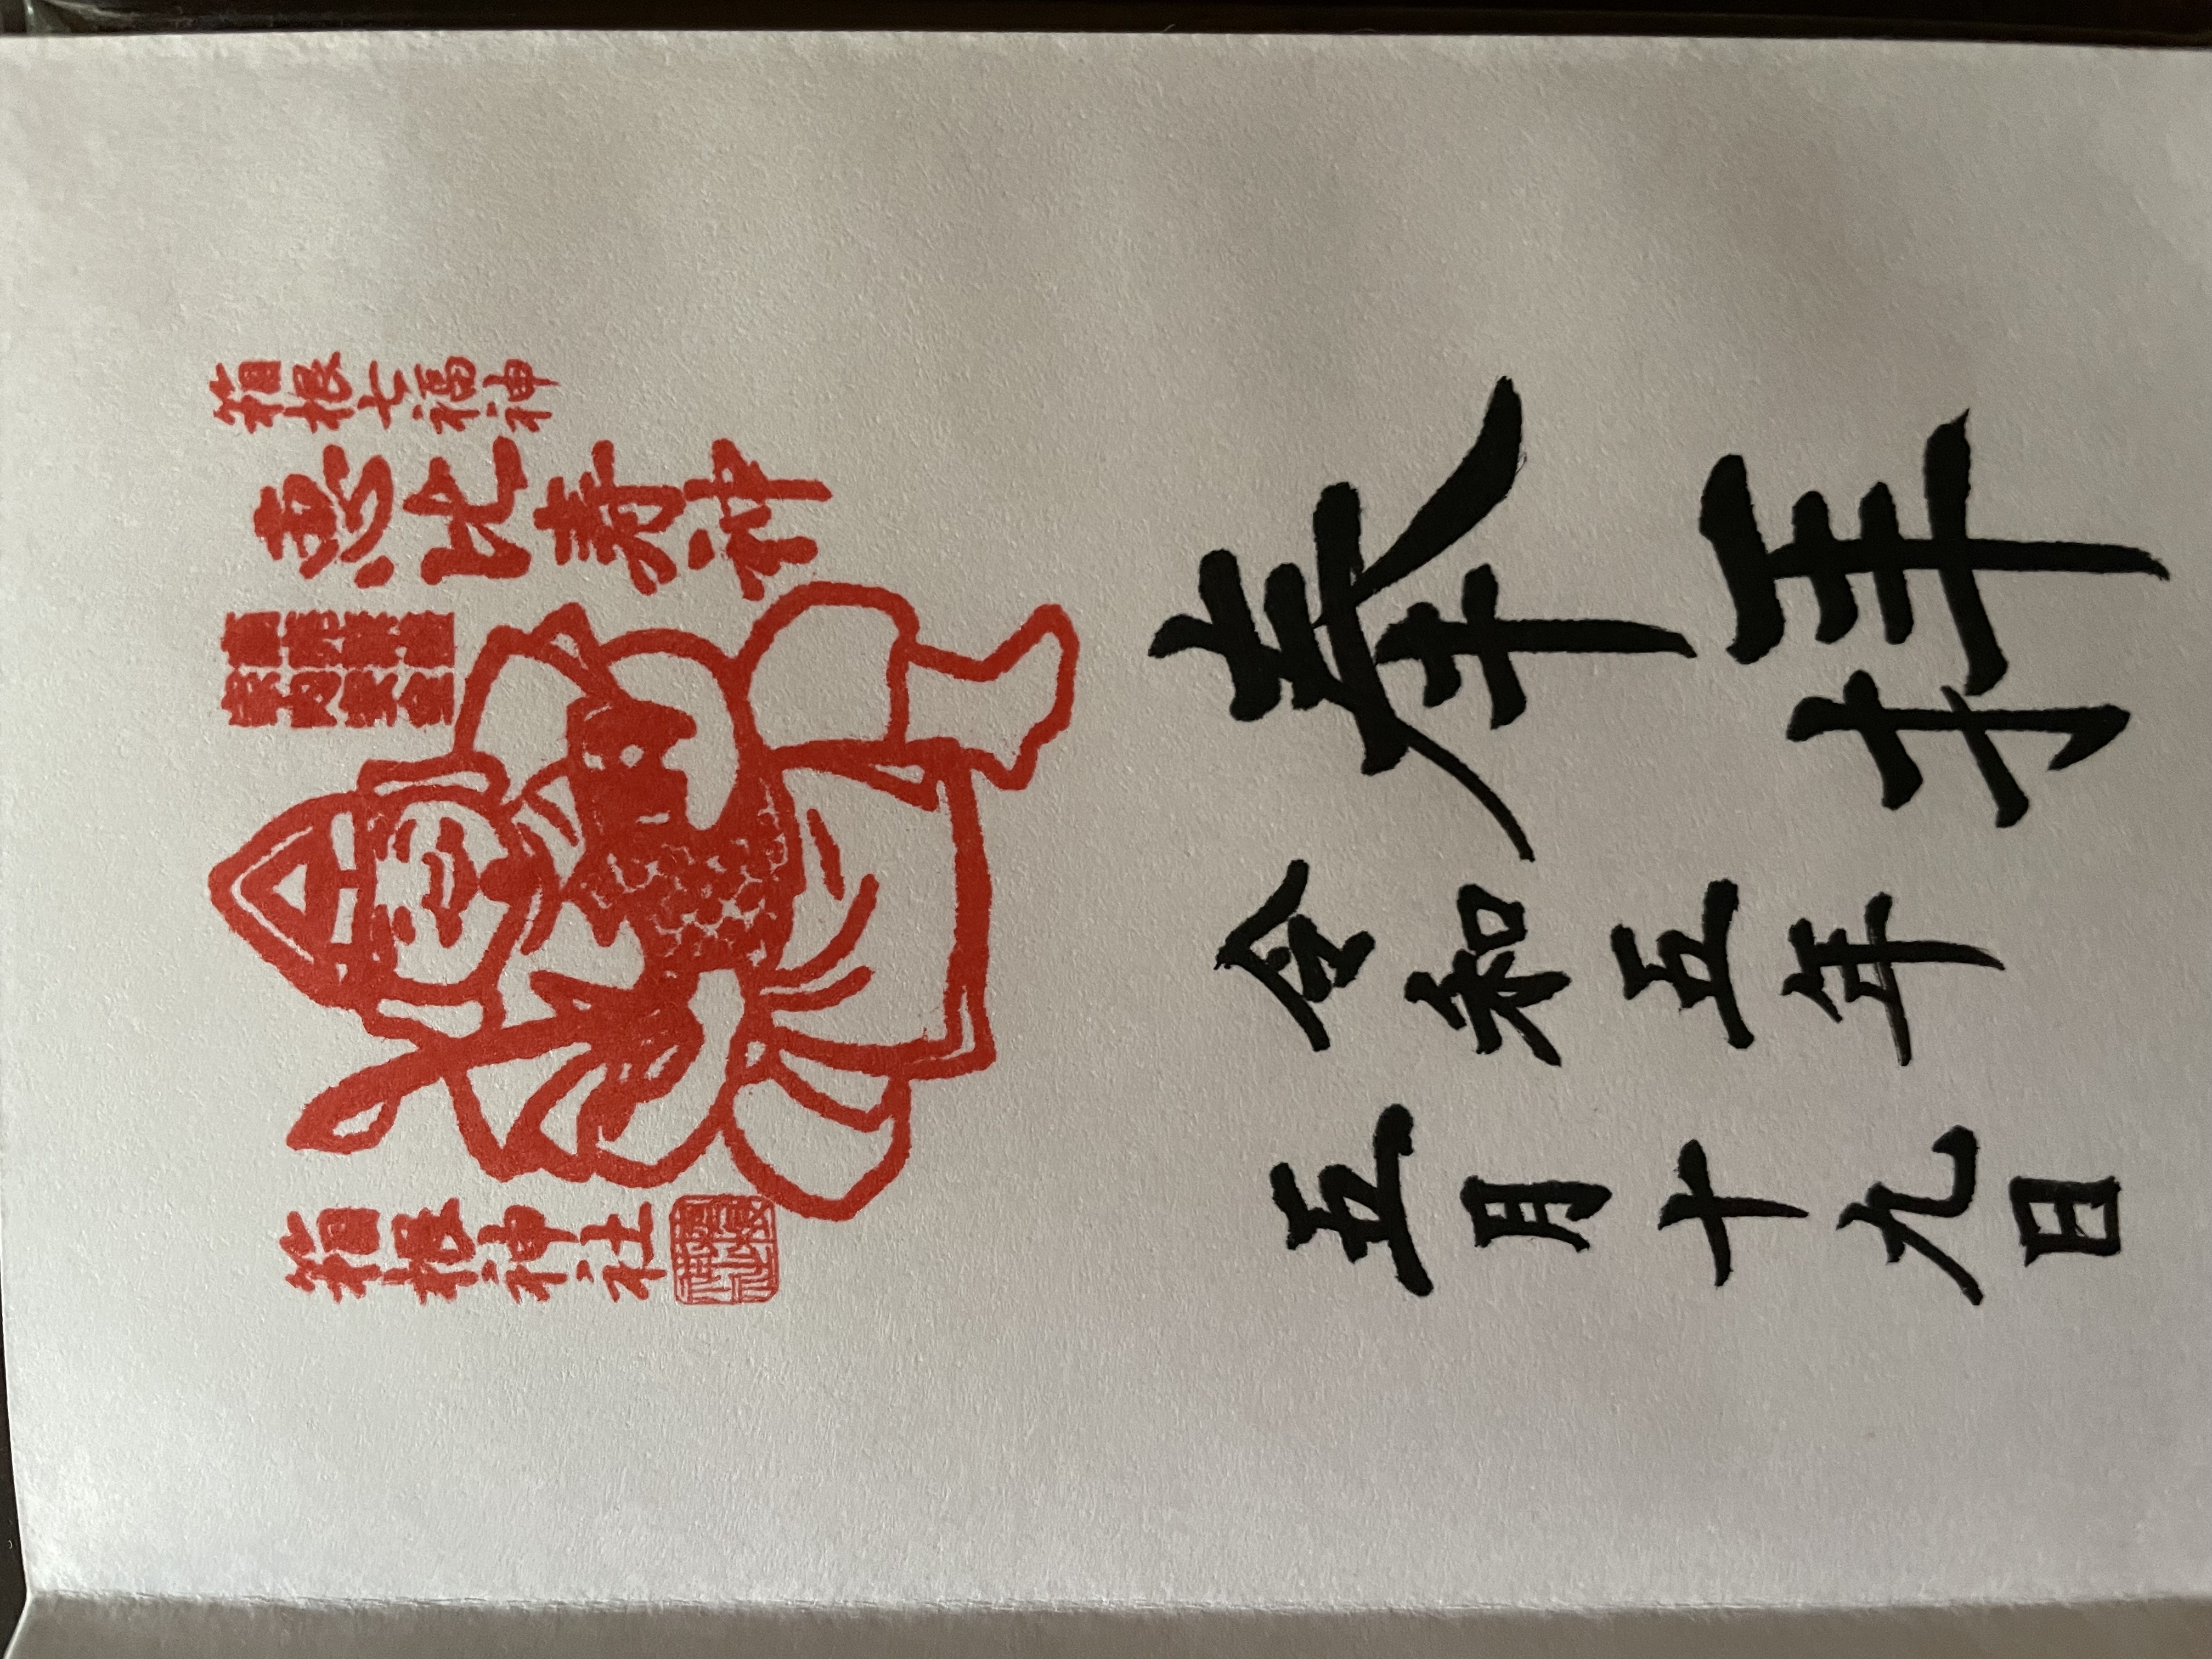 箱根七福神
恵比寿神
商売繁盛
家内安全
箱根神社
箱根
神社
奉拝
令和五年
五月十九日